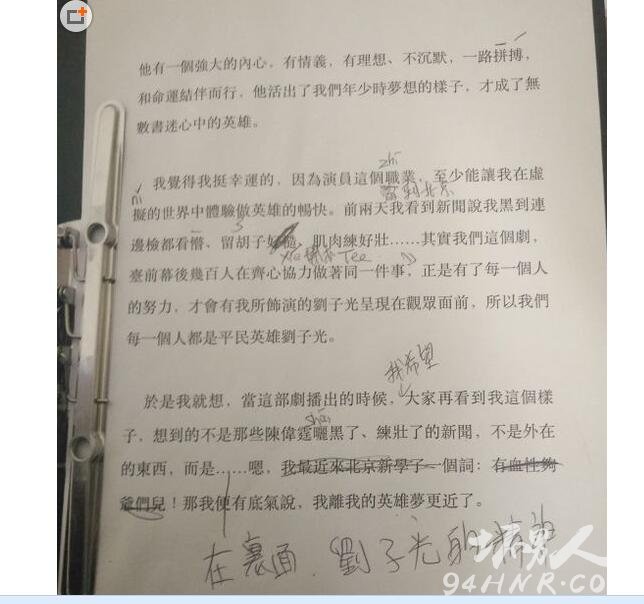 他有一個強大的內心，有情義，有理想、不沉默，一路拼搏，
和命運結伴而行，他活出了我們年少時夢想的樣子，才成了無
數書迷心中的英雄。
zhí
我覺得我挺幸運的，因為演員這個職業，至少能讓我在虛
nǐ
擬的世界中體驗做英雄的暢快。前兩天我看到新聞說我黑到連
邊檢都看懵、留胡子好糙、肌肉練好壯……其實我們這個劇，
臺前幕後幾百人在齊心協力做著同一件事，正是有了每一個人
的努力，才會有我所飾演的劉子光呈現在觀眾面前，所以我們
每一個人都是平民英雄劉子光。
我希望
於是我就想，當這部劇播出的時候，大家再看到我這個樣
子，想到的不是那些陳偉霆曬黑了、練壯了的新聞，不是外在
的東西，而是……嗯，我最近來北京新學了一個詞：有血性夠
爺們兒！那我便有底氣說，我離我的英雄夢更近了。
在裏面 劉子光的
94HNR.CO